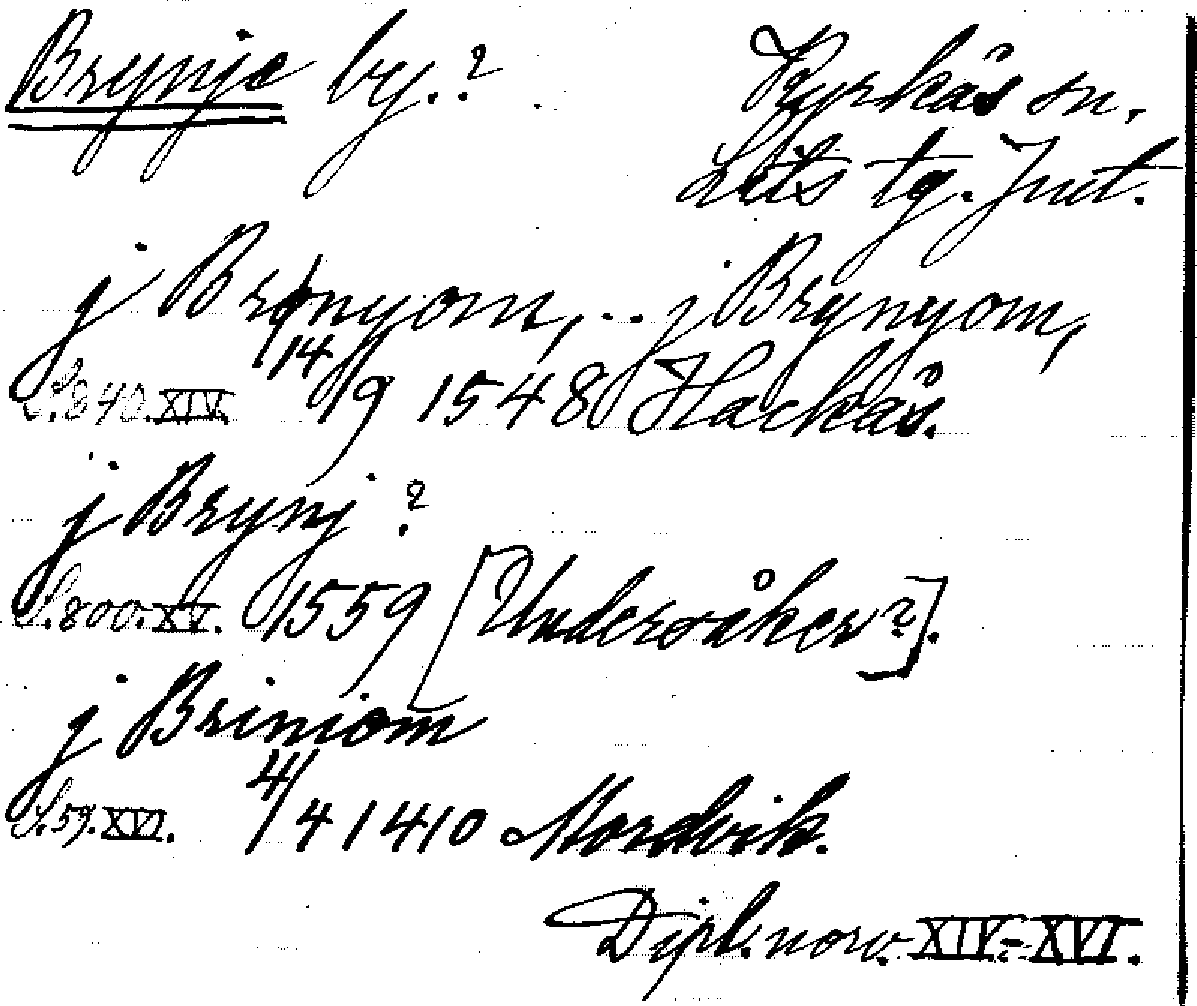 Brynje by.? Kyrkås sn.
Lits tg. Jmt.
j Brønyom, .. j Brynyom,
S. 840. XIV. 14/9 1548 Hackås.
j Brynj ?
S. 800. XV. 1559 [Undersåker?].
j Briniom
S. 59. XVI. 4/4 1410 Mordvik.
Dipl. norv. XIV-XVI.